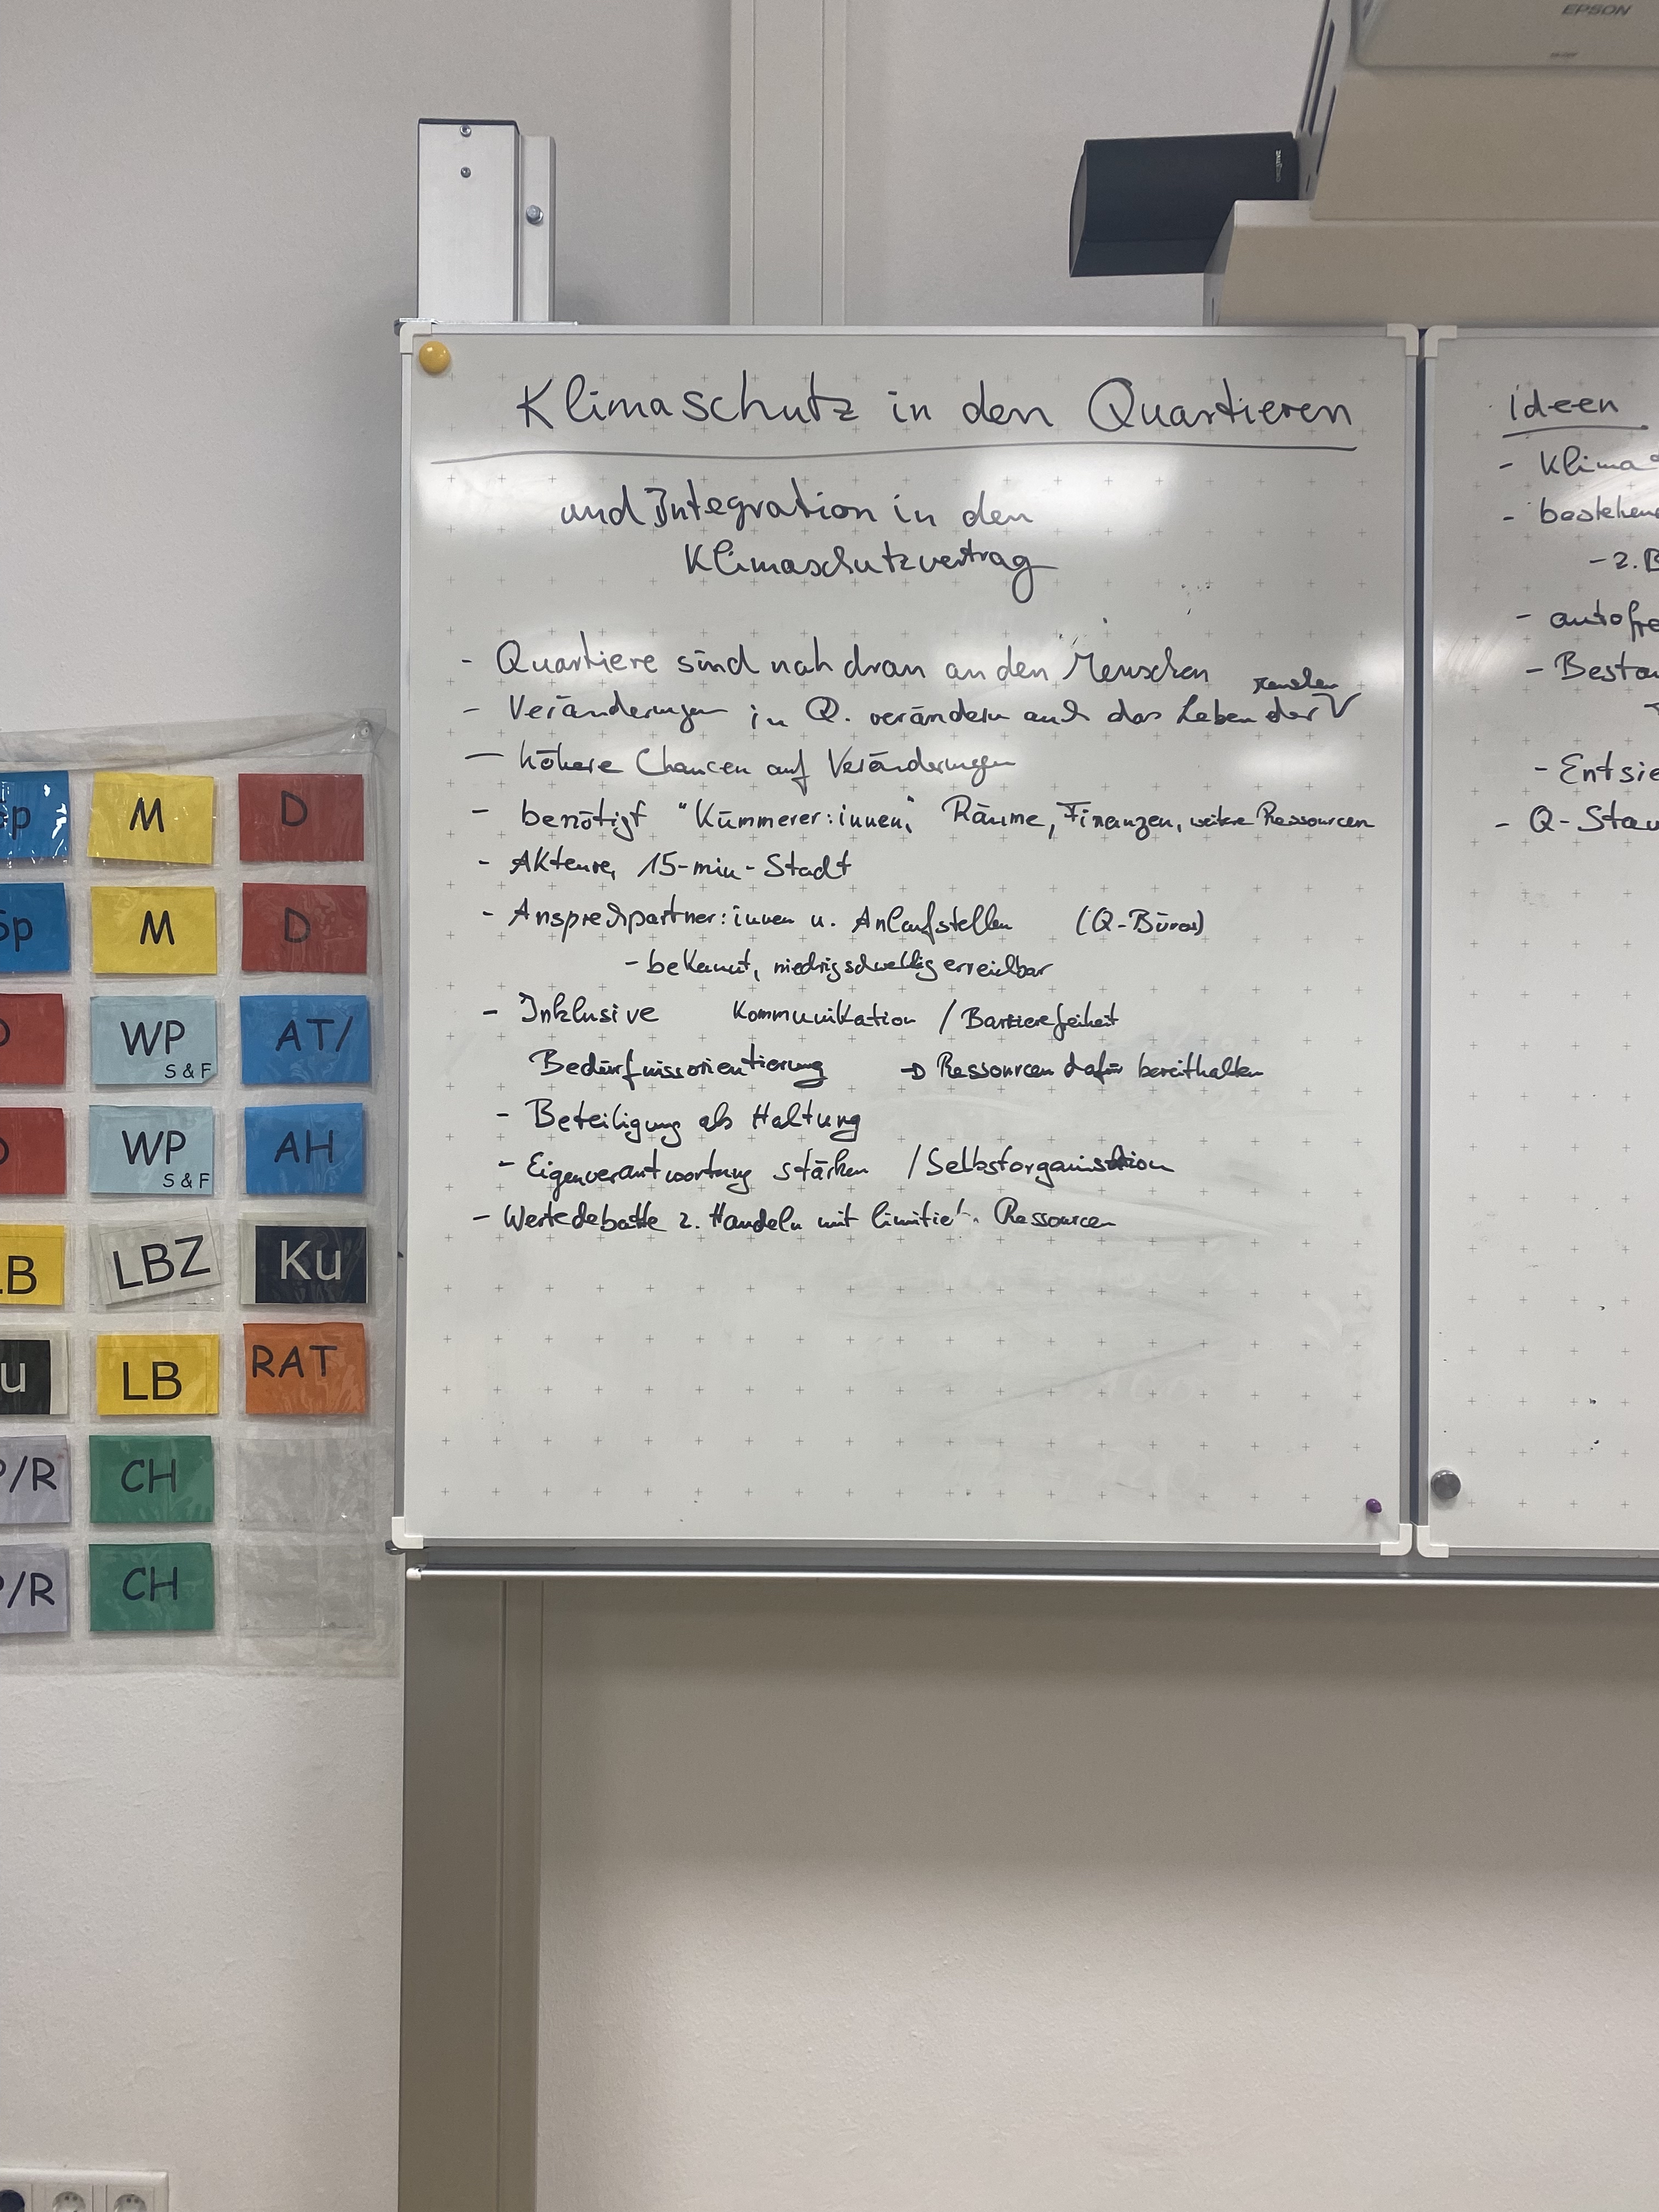 EPSON
Klimaschutz in den Quartieren
und Integration in den
Klimaschutzvertrag
- Quartiere sind nah dran an den Menschen
- Veränderungen in Q. verändern auch das Leben der Menschen
- höhere Chancen auf Veränderungen
- benötigt "Kümmerer:innen", Räume, Finanzen, weitere Ressourcen
- Akteure, 15-min-Stadt
- Ansprechpartner:innen u. Anlaufstellen (Q-Büros)
- bekannt, niedrigschwellig erreichbar
- Inklusive Kommunikation / Barrierefreiheit
Bedürfnissorientierung → Ressourcen dafür bereithalten
- Beteiligung als Haltung
- Eigenverantwortung stärken / Selbstorganisation
- Wertedebatte z. Handeln mit limitie. Ressourcen
Ideen
- Klima
- bestehen
- 2. B
- autofre
- Besta
- Entsie
- Q-Sta
Sp M D
Sp M D
D WP S & F AT/
D WP S & F AH
LB LBZ Ku
u LB RAT
P/R CH
P/R CH